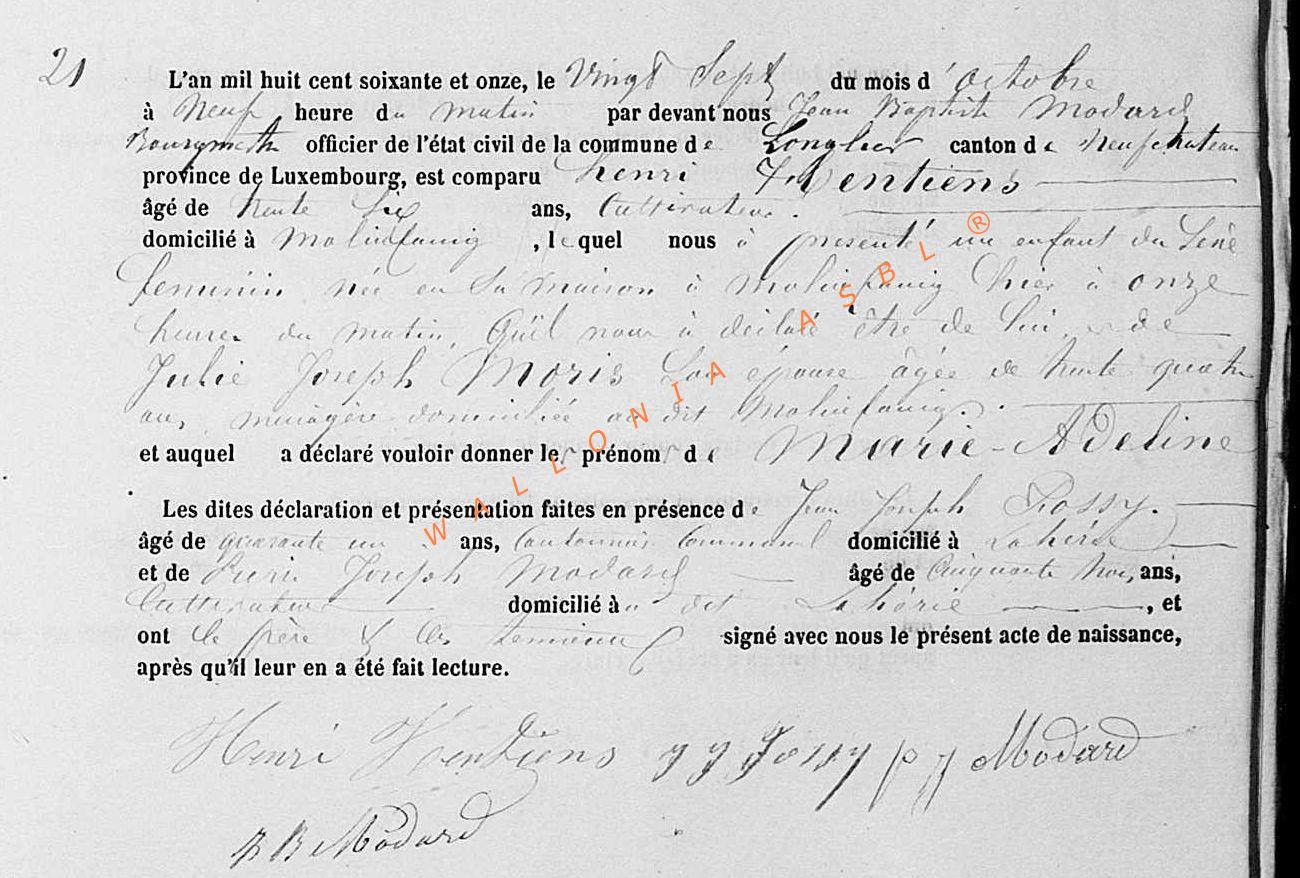 21
L'an mil huit cent soixante et onze, le Vingt Sept du mois d'octobre
à Neuf heure du matin par devant nous Jean Baptiste Modard
Bourgmestre officier de l'état civil de la commune de Longlier canton de Neufchateau
province de Luxembourg, est comparu Henri Hentiens
âgé de trente Six ans, Cultivateur.
domicilié à Molinfaing, lequel nous à présenté un enfant du Sexe
feminin née en Sa maison à Molinfaing hier à onze
heures du matin, Qu'il nous à déclaré être de lui, et de
Julie Joseph Moris Son épouse âgée de trente quatre
ans, menagère domiciliée au dit Molinfaing.
et auquel a déclaré vouloir donner les prénoms de Marie-Adeline
Les dites déclaration et présentation faites en présence de Jean Joseph Rossy.
âgé de quarante un ans, Cantonnier Communal domicilié à Lahérie
et de Pierre Joseph Modard âgé de Cinquante trois ans,
Cultivateur domicilié à dit Lahérie, et
ont le père & les temoins signé avec nous le présent acte de naissance,
après qu'il leur en a été fait lecture.
Henri Hentiens J J Rossy p j Modard
J B Modard
WALLONIA ASBL ®